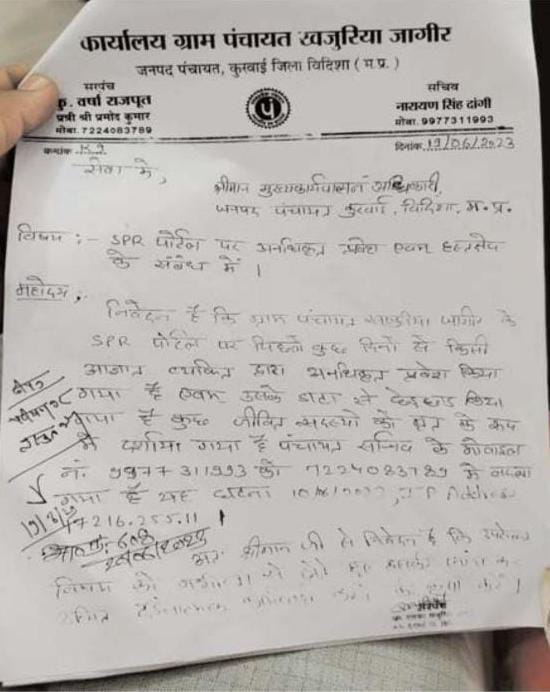 कार्यालय ग्राम पंचायत खजुरिया जागीर
जनपद पंचायत, कुरवाई जिला विदिशा (म.प्र.)
सरपंच
कु. वर्षा राजपूत
पुत्री श्री प्रमोद कुमार
मोबा. 7224083789
सचिव
नारायण सिंह दांगी
मोबा. 9977311993
क्रमांक K9
दिनांक 19/06/2023
सेवा में,
श्रीमान मुख्यकार्यपालन अधिकारी,
जनपद पंचायत कुरवाई, विदिशा, म.प्र.
विषय :- SPR पोर्टल पर अनधिकृत प्रवेश एवम हस्तक्षेप
के संबंध में ।
महोदय,
निवेदन है कि ग्राम पंचायत खजुरिया जागीर के
SPR पोर्टल पर पिछले कुछ दिनों से किसी
अज्ञात व्यक्ति द्वारा अनधिकृत प्रवेश किया
गया है एवम उसके डाटा से छेड़छाड़ किया
गया है कुछ जीवित सदस्यों को मृत के रूप
में दर्शाया गया है पंचायत सचिव के मोबाइल
नं. 9977311993 को 7224083789 में बदला
गया है यह घटना
7216.255.11
अतः श्रीमान जी से निवेदन है कि उपरोक्त
विषय को गंभीरता से
करने की कृपा करें।